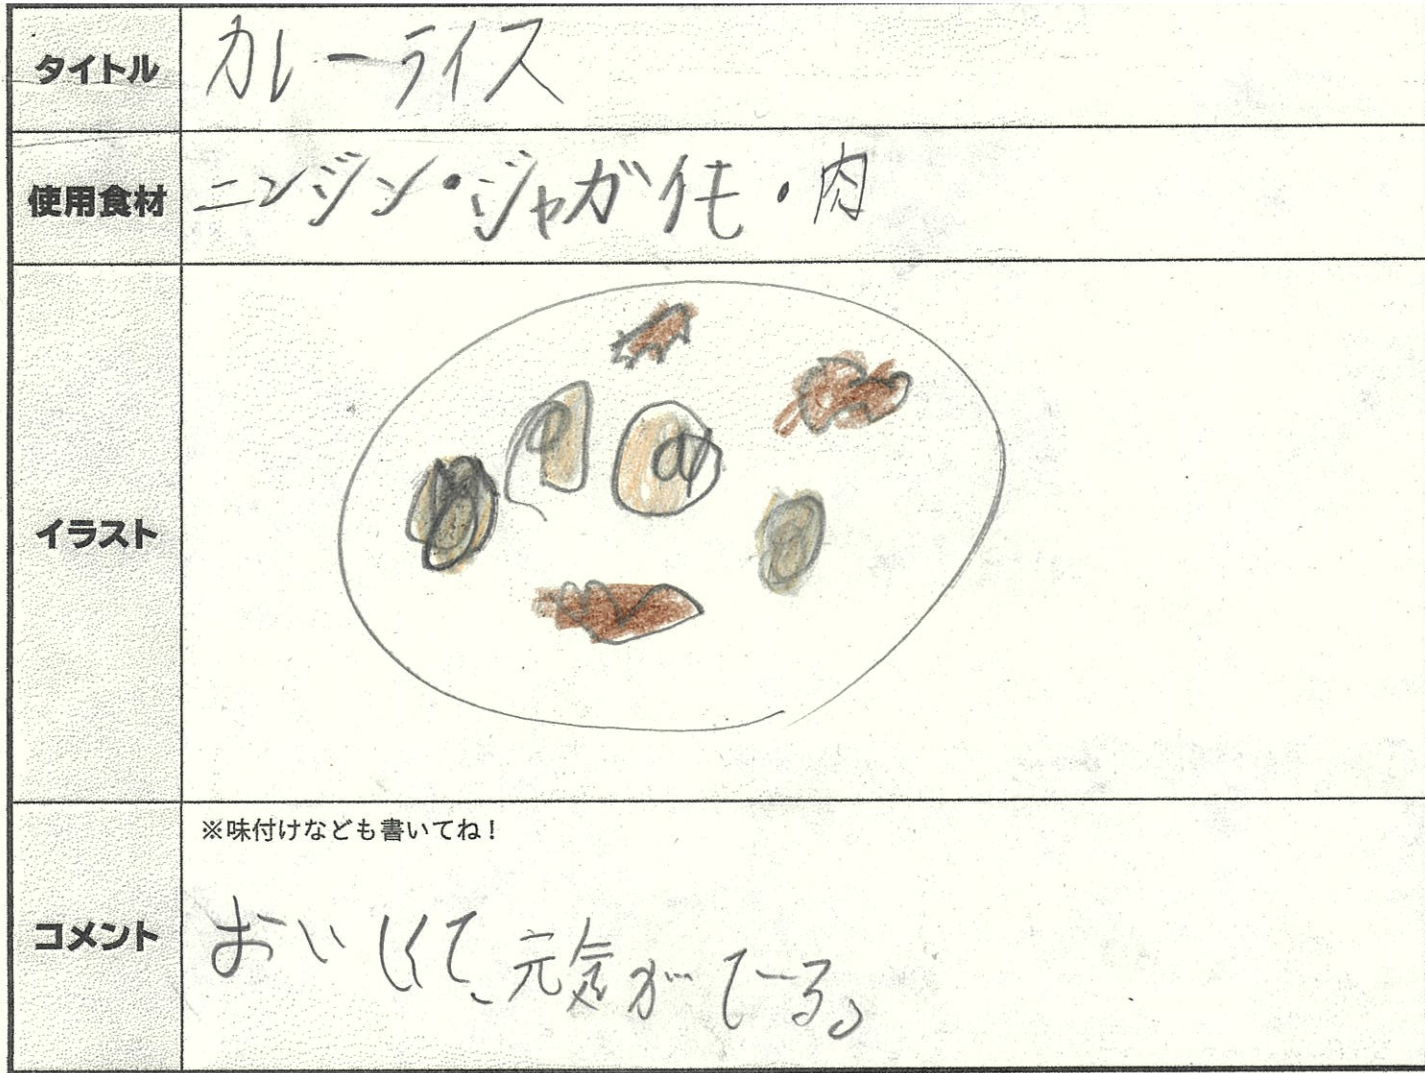 タイトル
カレーライス
使用食材
ニンジン・ジャガイモ・肉
イラスト
コメント
※味付けなども書いてね!
おいしくて、元気がでーる。